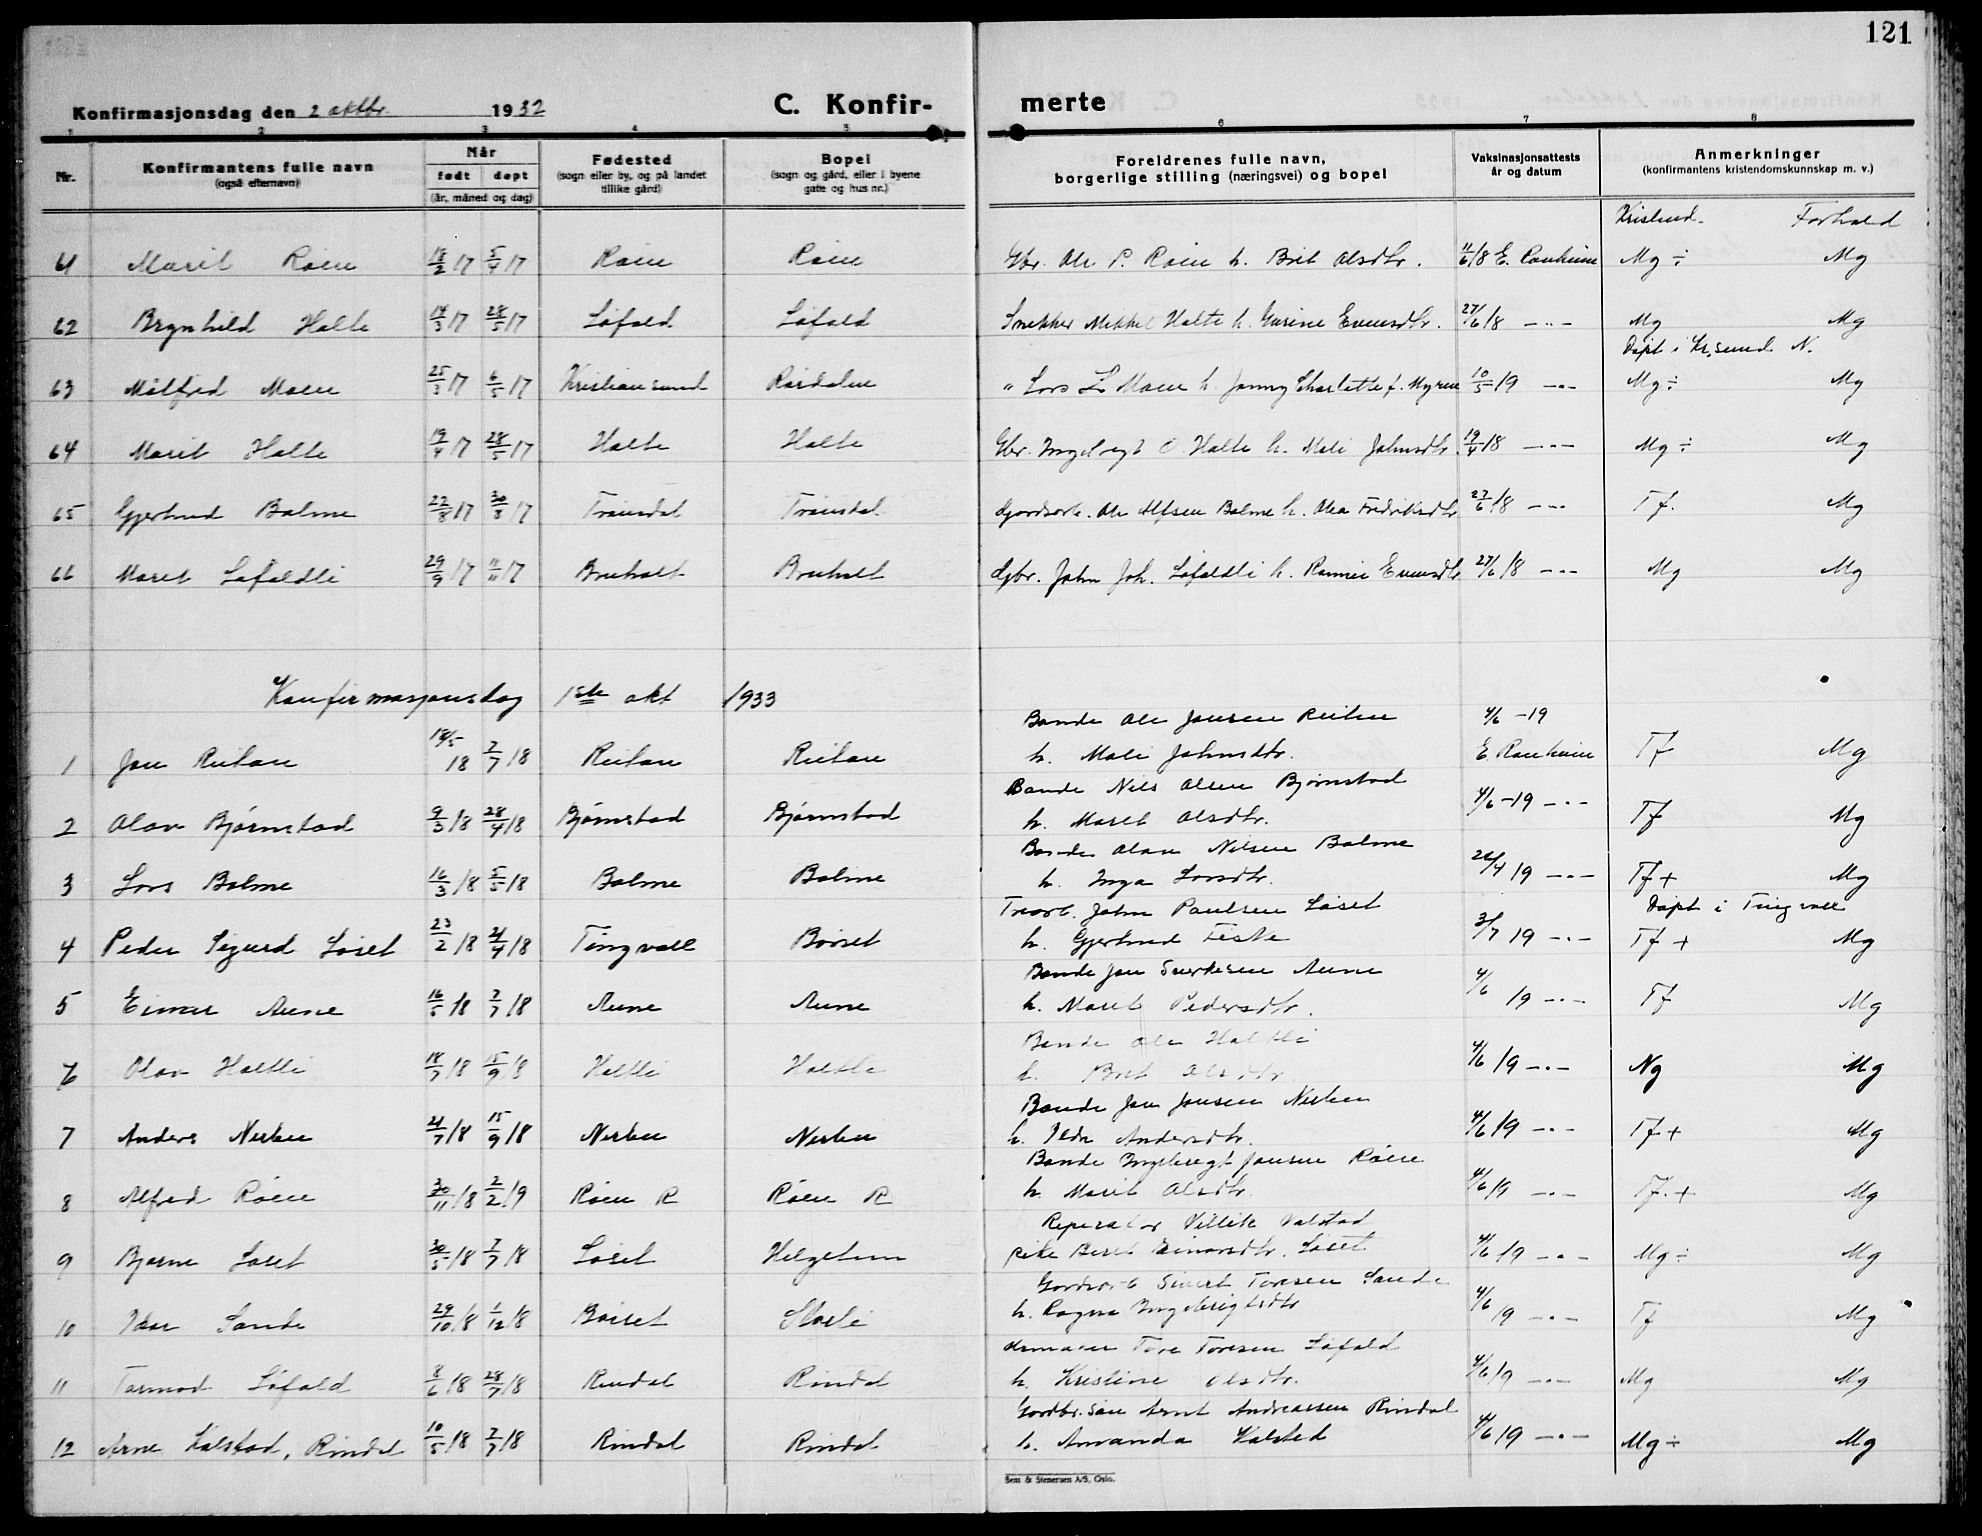 121
Konfirmasjonsdag den 2 oktbr. 1932 C. Konfir- merte
1 2 3 4 5 6 7 8
Nr. Konfirmantens fulle navn (også efternavn) Når født døpt (år, måned og dag) Fødested (sogn eller by, og på landet tillike gård) Bopel (sogn og gård, eller i byene gate og hus nr.) Foreldrenes fulle navn, borgerlige stilling (næringsvei) og bopel Vaksinasjonsattests år og datum Anmerkninger (konfirmantens kristendomskunnskap m. v.)
Kristend. Forhold
61 Marit Røen 18/2 17 5/4 17 Røen Røen Gbr. Ole P. Røen h. Brit Olsdtr. 11/6 18 E. Ranheim Mg ÷ Mg
62 Brynhild Halte 14/3 17 28/5 17 Løfald Løfald Snekker Mikkel Halte h. Gurine Evensdtr. 27/6 18 -"- Mg Mg
Døpt i Kr.sund N.
63 Målfrid Moen 25/3 17 6/5 17 Kristiansund Rørdalen " Lars L. Moen h. Jenny Charlotte f. Myren 10/5 19 -"- Mg ÷ Mg
64 Marit Halte 19/4 17 28/5 17 Halte Halte Gbr. Ingebrigt O. Halte h. Mali Johnsdtr. 19/4 18 -"- Mg ÷ Mg
65 Gjertrud Bolme 22/8 17 30/8 17 Trønsdal Trønsdal Gårdsarb. Ole Alfsen Bolme h. Olea Fredriksdtr 27/6 18 -"- Tf. Mg
66 Maret Løfaldli 29/9 17 11/11 17 Bruholt Bruholt Gbr. John Joh. Løfaldli h. Rannei Evensdtr 27/6 18 -"- Mg Mg
Konfirmasjonsdag 1ste okt 1933
Bonde Ole Jonsen Reitan 4/6 -19
1 Jon Reitan 18/5 18 7/7 18 Reitan Reitan h. Mali Johnsdtr. E. Ranheim Tf Mg
Bonde Nils Olsen Bjørnstad
2 Olav Bjørnstad 9/3 18 28/4 18 Bjørnstad Bjørnstad h. Maret Olsdtr. 4/6 -19 -"- Tf Mg
Bonde Olav Nilsen Bolme
3 Lars Bolme 16/3 18 5/5 18 Bolme Bolme h. Inga Larsdtr. 26/4 19 -"- Tf + Mg
Trearb. John Paulsen Løset Døpt i Tingvoll
4 Peder Sigurd Løset 23/2 18 21/4 18 Tingvoll Børset h. Gjertrud Feste 3/7 19 -"- Tf + Mg
Bonde Jon Sverkesen Aune
5 Einar Aune 16/5 18 7/7 18 Aune Aune h. Maret Pedersdtr. 4/6 19 -"- Tf Mg
Bonde Ole Haltli
6 Olav Haltli 18/7 18 15/9 18 Haltli Haltli h. Brit Olsdtr. 4/6 19 -"- Ng Mg
Bonde Jon Jonsen Nerbu
7 Anders Nerbu 21/7 18 15/9 18 Nerbu Nerbu h. Ildri Andersdtr. 4/6 19 -"- Tf + Mg
Bonde Ingebrigt Jonsen Røen
8 Alfred Røen 30/11 18 2/2 19 Røen R Røen R h. Marit Olsdtr. 4/6 19 -"- Tf. + Mg
Reperatør Villik Valstad
9 Bjarne Løset 30/5 18 7/7 18 Løset Helgetun pike Beret Einarsdtr. Løset 4/6 19 -"- Mg ÷ Mg
Gårdsarb Sivert Toresen Sande
10 Ivar Sande 29/10 18 1/12 18 Børset Storli h. Ragna Ingebrigtsdtr 4/6 19 -"- Tf Mg
Urmaker Tore Toresen Løfald
11 Tormod Løfald 8/6 18 28/7 18 Rindal Rindal h. Kristine Olsdtr. 4/6 19 -"- Mg Mg
Gårdbr. søn Arnt Andreassen Rindal
12 Arne Kalstad, Rindal 10/5 18 7/7 18 Rindal Rindal h. Amanda Kalstad 4/6 19 -"- Mg ÷ Mg
Sem & Stenersen A/S, Oslo.